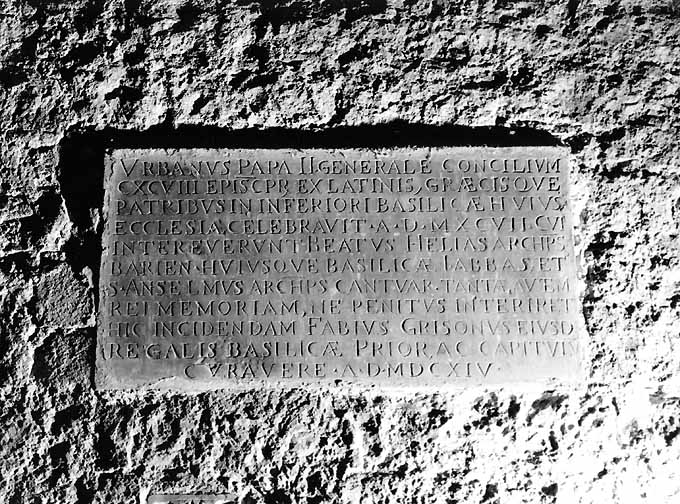 VRBANVS PAPA II GENERALE CONCILIVM
CXCVIII EPISCPR EX LATINIS, GRÆCISQVE
PATRIBVS IN INFERIORI BASILICÆ HVIVS
ECCLESIÆ CELEBRAVIT · A · D · MXCVII · CVI
INTEREVERVNT · BEATVS HELIAS ARCHPS
BARIEN · HVIVSQVE BASILICÆ I ABBAS, ET
S · ANSELMVS ARCHPS CANTVAR · TANTÆ, AVTEM
REI MEMORIAM, NE PENITVS INTERIRET
HIC INCIDENDAM FABIVS GRISONVS EIVSD
REGALIS BASILICÆ PRIOR, AC CAPITVLV
CVRAVERE · A · D · MDCXIV ·